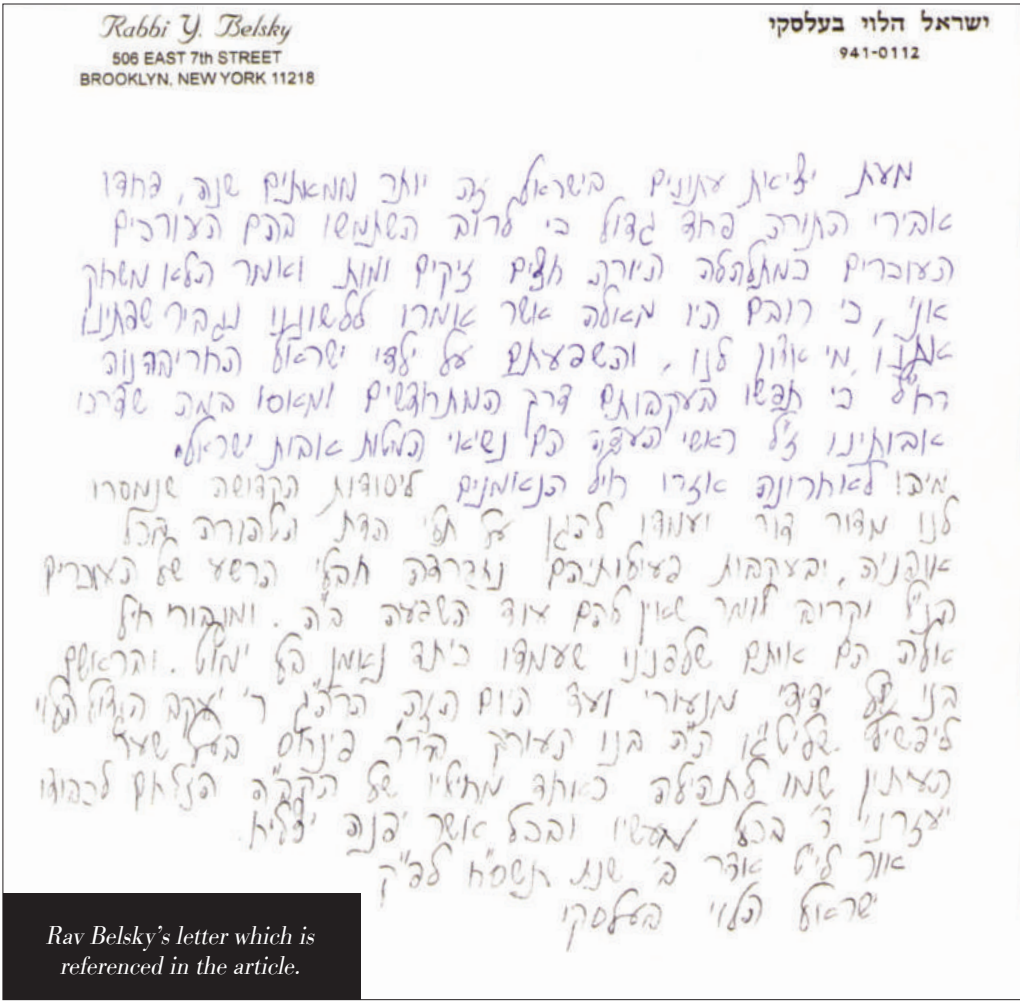 Rabbi Y. Belsky
506 EAST 7th STREET
BROOKLYN, NEW YORK 11218
ישראל הלוי בעלסקי
941-0112
מעת יציאת עתונים בישראל זה יותר ממאתים שנה, פחדו
אבירי התורה פחד גדול כי לרוב השתמשו בהם העורכים
העוכרים כמתלהלה היורה חצים זיקים ומות ואומר הלא משחק
אני, כי רובם היו מאלה אשר אמרו ללשוננו נגביר שפתינו
אתנו מי אדון לנו, והשפעתם על ילדי ישראל החריבה נוה
רח"ל כי חפשו בעקבותם דרך המתחדשים ומאסו במה שדרכו
אבותינו ז"ל ראשי העדה הם נשיאי המטות אבות ישראל.
לאחרונה אזרו חיל הנאמנים ליסודות הקדושה שנמסרו
לנו מדור דור ועמדו להגן על הדת הטהורה בכל
אופניה, ובעקבות פעילותיהם חבלי הרשע של העוכרים
הנ"ל וקרוב לומר שאין להם עוד השפעה כ"ה. ומגבורי חיל
אלה הם אותם שלפנינו שעמדו כיתד נאמן בל ימוט. ובראשם
בנו של ידידי מנעורי ועד היום הזה הרה"ג ר' יעקב הגדול הלוי
ליפשיץ שליט"א ה"ה בנו העורך הר"ר פינחס בעל שער
העתין שמו לתהילה כאחד מחיליו של הקב"ה הנלחם לכבודו
יעזרני ד' בכל מעשיו ובכל אשר יפנה יצליח.
אור לי"ט אדר ב' שנת תשס"ח לפ"ק
ישראל הלוי בעלסקי
Rav Belsky's letter which is
referenced in the article.